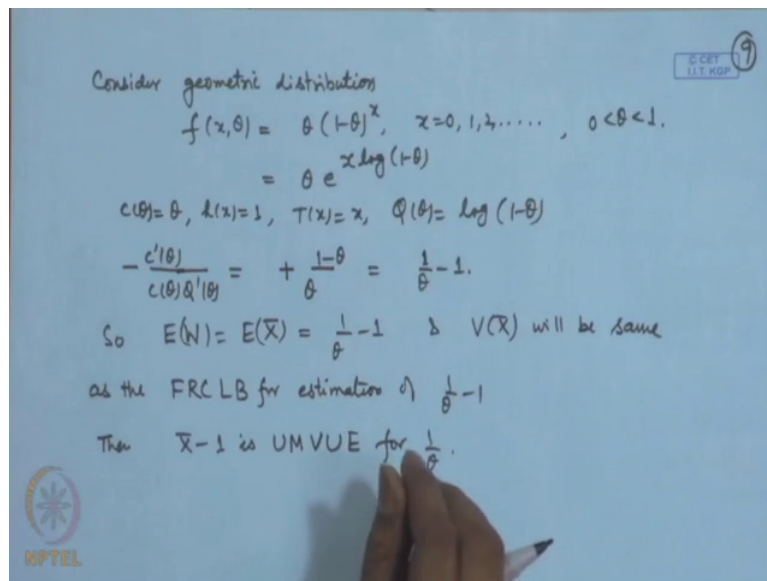 9
© CET
I.I.T. KGP
Consider geometric distribution
f(x,θ) = θ(1-θ)^x, x=0,1,2,....., 0<θ<1.
= θ e^{x log(1-θ)}
c(θ)=θ, h(x)=1, T(x)=x, Q(θ)= log(1-θ)
- c'(θ)/(c(θ)Q'(θ)) = + (1-θ)/θ = 1/θ - 1.
So E(W)= E(X̄) = 1/θ - 1 & V(X̄) will be same
as the FRCLB for estimation of 1/θ - 1
Then X̄-1 is UMVUE for 1/θ.
NPTEL